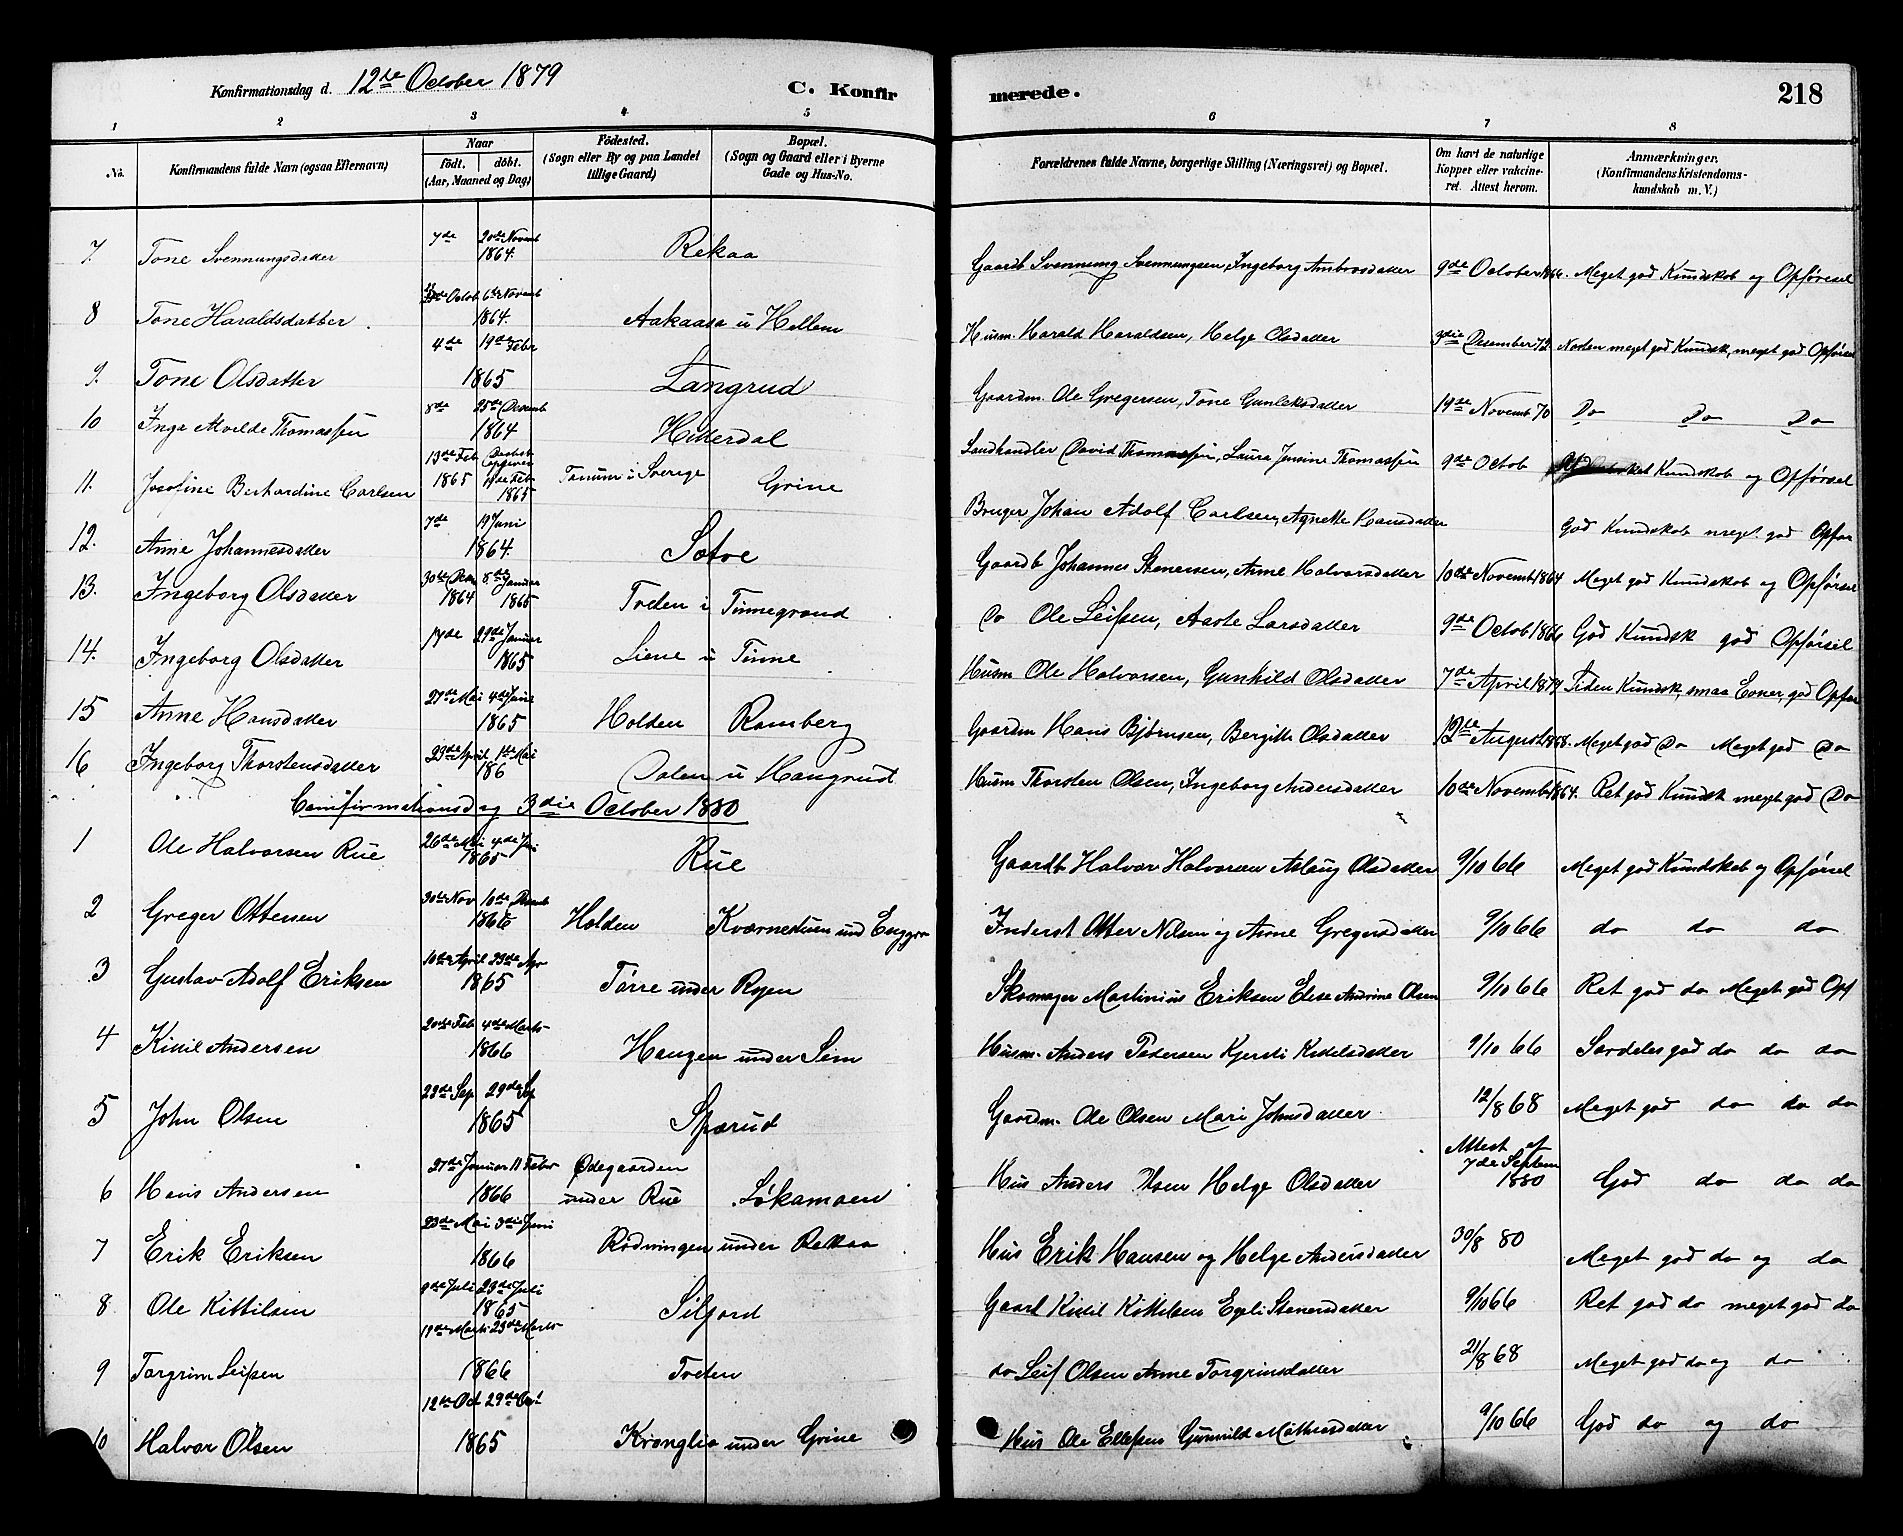 Konfirmationsdag d. 12te October 1879 C. Konfir merede. 218
1 2 3 4 5 6 7 8
No. Konfirmandens fulde Navn (ogsaa Efternavn) Naar født. døbt. (Aar, Maaned og Dag) Födested. (Sogn eller By og paa Landet tillige Gaard) Bopæl. (Sogn og Gaard eller i Byerne Gade og Hus-No. Forældrenes fulde Navne, borgerlige Stilling (Næringsvei) og Bopæl. Om havt de naturlige Kopper eller vakcineret. Attest herom. Anmærkninger. (Konfirmandens Kristendomskundskab m. V.)
7. Tone Svennungsdatter 7de 20de Novemb 1864. Rekaa Gaardb Svennung Svennungsen, Ingeborg Ambrosdatter 9de October 1866. Meget god Kundskab og Opførsel
8 Tone Haraldsdatter Octob 6te Novemb 1864. Aakaasa u Hellem Husm. Harald Haraldsen, Helge Olsdatter 3die Desember 72 Nosten meget god Kundsk, meget god Opførsel
9. Tone Olsdatter 4de 19de Febr 1865 Langrud Gaardm. Ole Gregersen, Tone Gunleksdatter 19de Novemb 70 Do Do Do
10 Inga Alvilde Thomassen 8de 25de Desemb 1864 Hiterdal Landhandler David Thomassen, Laura Jensine Thomassen 9de Octob Kundskab og Opførsel
11. Josefine Berhardine Carlsen 13de Feb 1865 19de Feb 1865 Tanum i Sverige Grine Bruger Johan Adolf Carlsen, Agnette Hansdatter God Kundskab meget god Opfør
12. Anne Johannesdatter 7de 19 Juni 1864. Sætre Gaardb Johannes Stenersen, Anne Halvorsdatter 10de Novemb 1864 Meget god Kundskab og Opførsel
13. Ingeborg Olsdatter 30te Des 1864 8de Januar 1865 Træden i Tinnegrand Do Ole Leifsen, Aaste Larsdatter 9de Octob 1866 God Kundsk god Opførsel
14. Ingeborg Olsdatter 17de 29de Januar 1865 Liene u Tinne Husm Ole Halvorsen, Gunhild Olsdatter 7de April 1879 Liden Kundsk, smaa Evner, god Opfør
15 Anne Hansdatter 27de Mai 4de Juni 1865 Holden Ramberg Gaardm Hans Bjørnsen, Bergitte Olsdatter 12te August 1868. Meget god Do Meget god Do
16 Ingeborg Thorstensdatter 23de April 1ste Mai 186 Dalen u Haugrud Husm Thorsten Olsen, Ingeborg Andersdatter 10de Novemb 1864. Ret god Kundsk meget god Do
Confirmationsdag 3die October 1880
1 Ole Halvorsen Rue 26de Mai 4de Juni 1865 Rue Gaardb Halvor Halvorsen Aslaug Olsdatter 9/10 66 Meget god Kundskab og Opførsel
2 Greger Ottersen 30te Nov 10de Desemb 1866 Holden Kværnestuen und Enggra Inderst Otter Nilsen og Anne Gregersdatter 9/10 66 do do do
3 Gustav Adolf Eriksen 10de April 23de Apr 1865 Tørre under Ryen Skomager Martinius Eriksen Elise Andrine Olsen 9/10 66 Ret god do Meget god Opf
4 Kittil Andersen 20de Feb 4de Marts 1866 Haugen under Sem Husm. Anders Pedersen Kjersti Kittelsdatter 9/10 66 Særdeles god do do do
5 John Olsen 23de Sep 29de Sep 1865 Sparud Gaardm. Ole Olsen Mari Johnsdatter 12/8 68 Meget god do do do
6 Hans Andersen 27de Januar 11 Febr 1866 Ødegaarden under Rue Løkamoen Hus Anders Olsen Helge Olsdatter Attest af 7de Septem 1880 God do do do
7 Erik Eriksen 23de Mai 3die Juni 1866 Rødningen under Rekaa Hus Erik Hansen og Helge Andersdatter 30/8 80 Meget god do og do
8 Ole Kittilsen 9de Juli 23de Juli 1865 Siljord Gaard Kittil Kittilsen Egeli Stenersdatter 9/10 66 Ret god do meget god do
9 Torgrim Leifsen 19de Marts 25de Marts 1866 Træden do Leif Olsen Anne Torgrimsdatter 21/8 68 Meget god do og do
10 Halvor Olsen 12te Oct 29de Oct 1865 Kronglia under Grine Hus Ole Ellefsen Gunnild Mathisdatter 9/10 66 God do og do